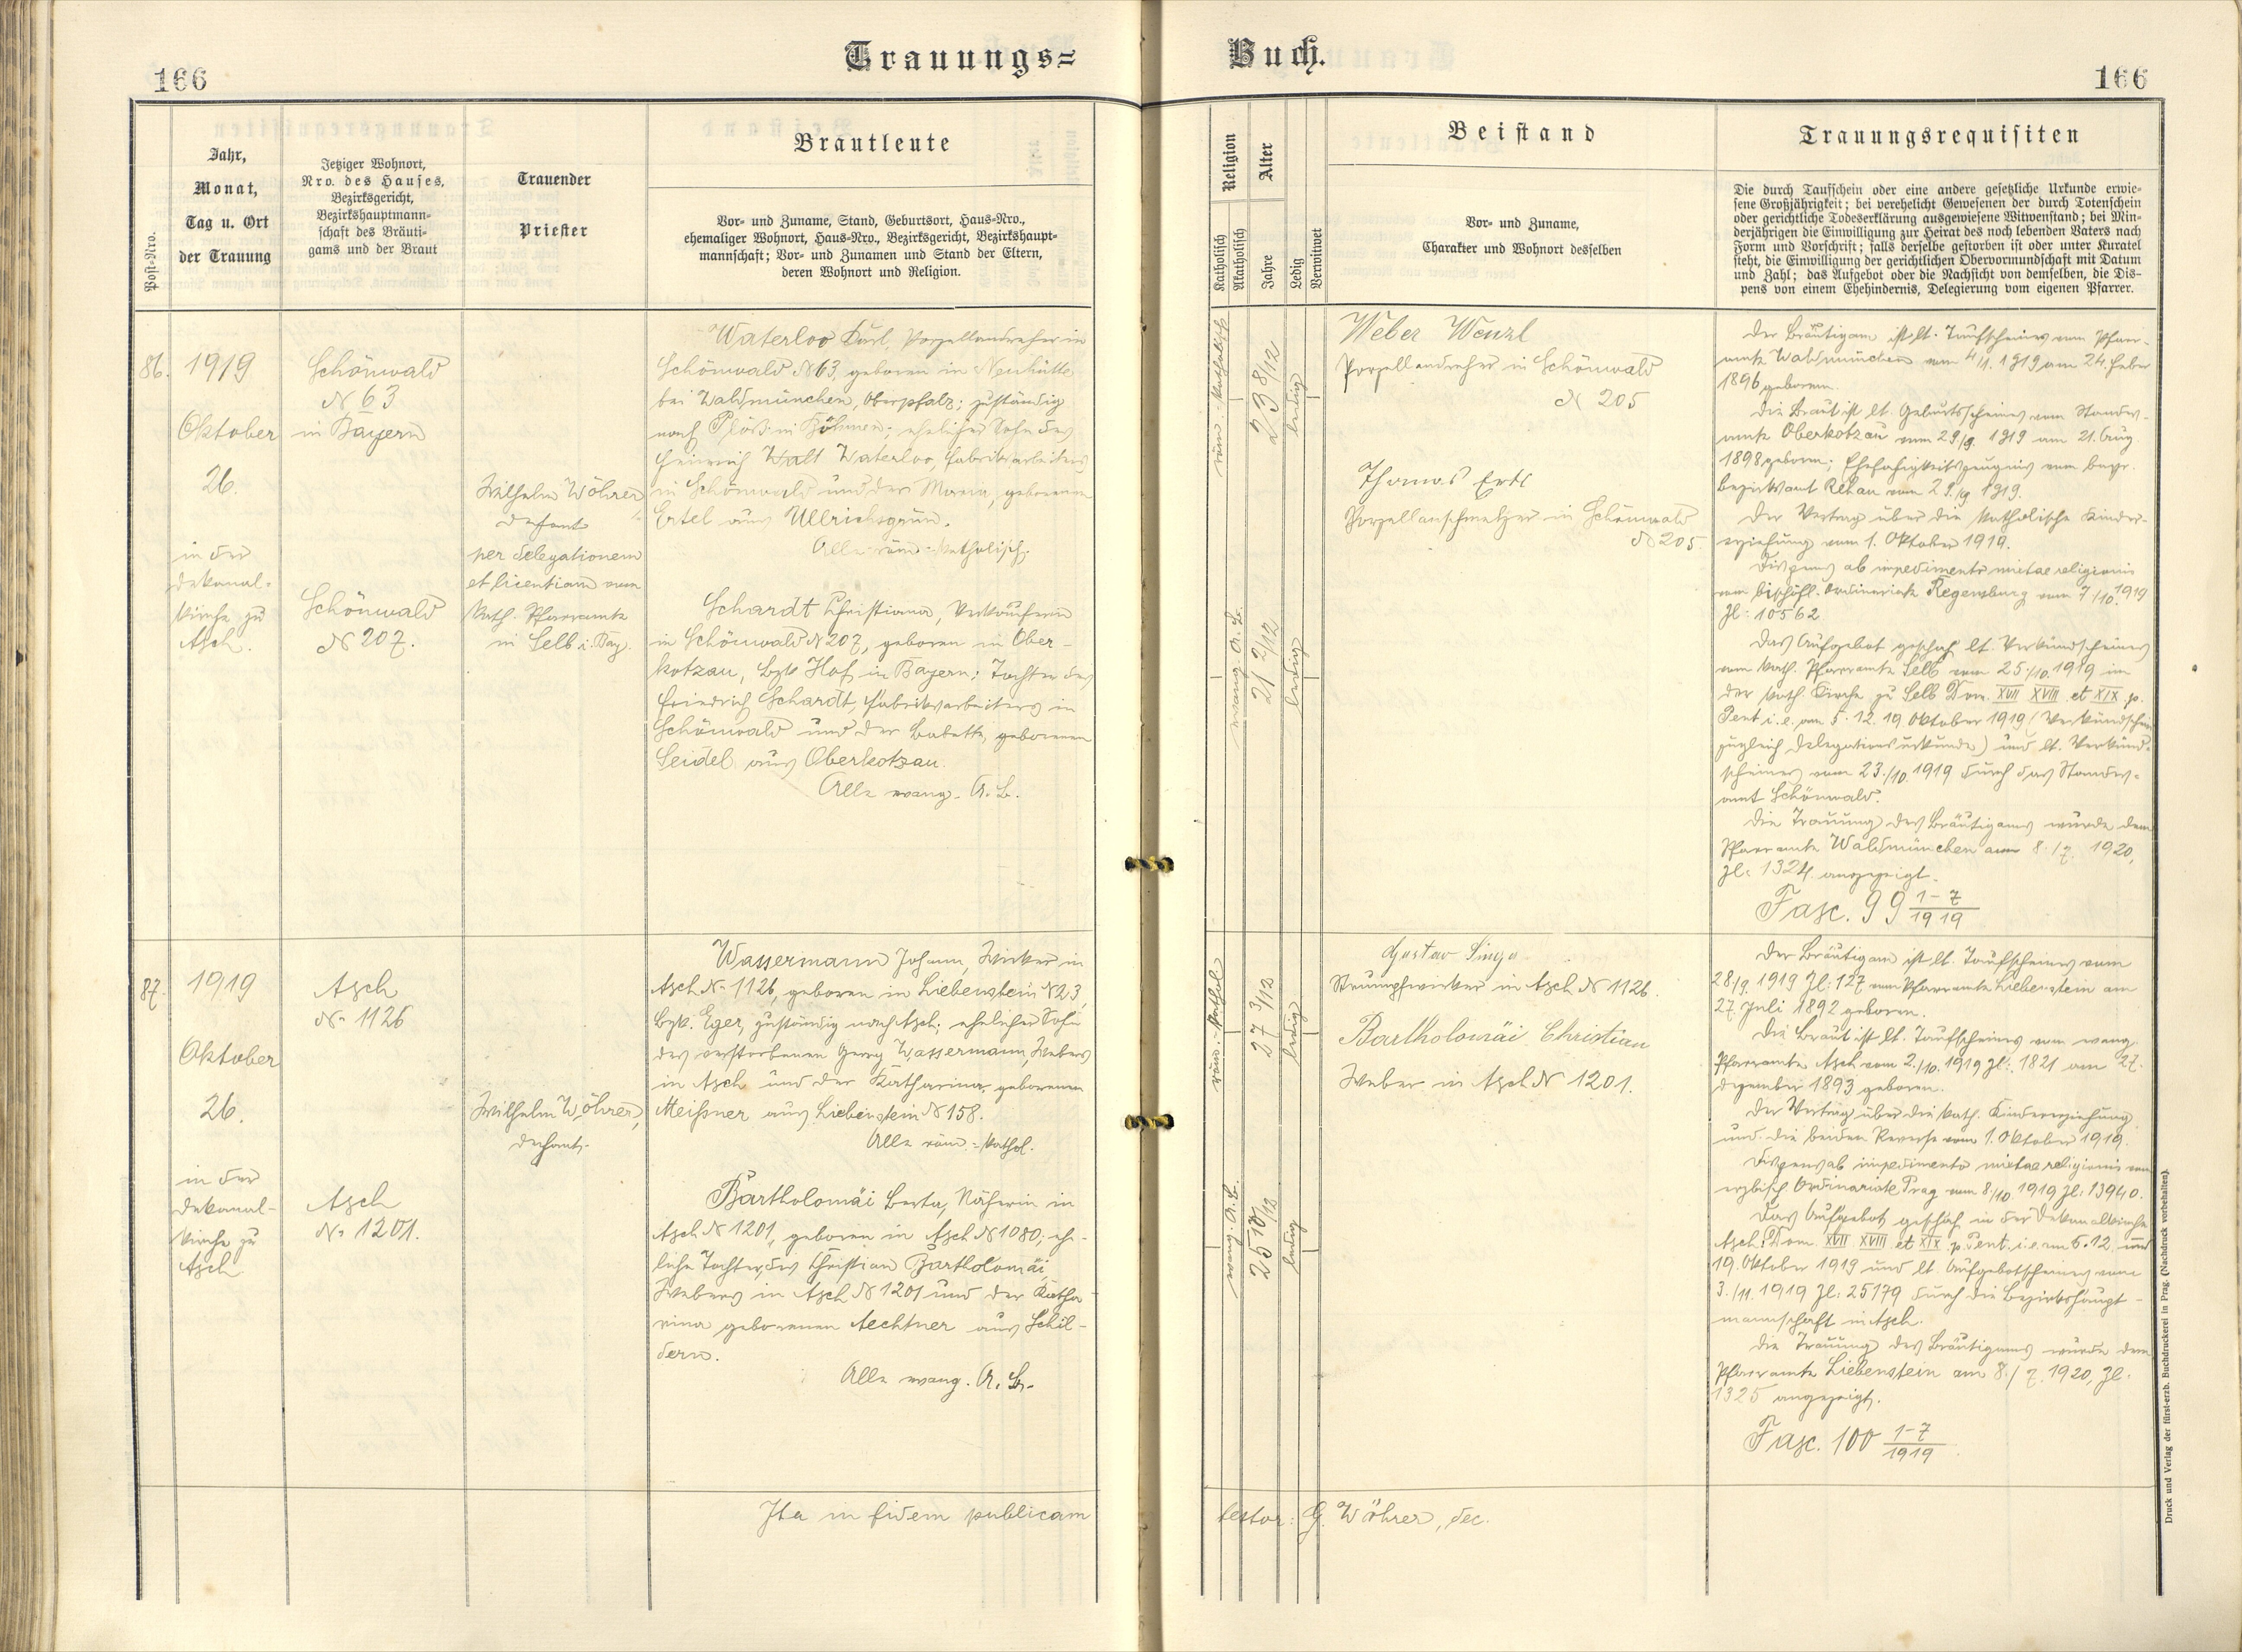 166
Trauungs=
Post-Nro.
Jahr,
Monat,
Tag u. Ort
der Trauung
Jetziger Wohnort,
Nro. des Hauses,
Bezirksgericht,
Bezirkshauptmann-
schaft des Bräuti-
gams und der Braut
Trauender
Priester
Brautleute
Vor- und Zuname, Stand, Geburtsort, Haus-Nro.,
ehemaliger Wohnort, Haus-Nro., Bezirksgericht, Bezirkshaupt-
mannschaft; Vor- und Zunamen und Stand der Eltern,
deren Wohnort und Religion.
86.
1919
Oktober
26.
in der
Dekanal-
kirche zu
Asch.
Schönwald
N 63
in Bayern
Schönwald
N 207.
Wilhelm Wöhrer,
Dechant
per delegationem
et licentiam vom
kath. Pfarramte
in Selb i. Bay.
Waterloo Karl, Porzellandreher in
Schönwald N 63, geboren in Neuhütte
bei Waldmünchen, Oberpfalz; zuständig
nach Plöß in Böhmen; ehelicher Sohn des
Heinrich Watt Waterloo, Fabriksarbeiters
in Schönwald und der Maria, geborenen
Ertel aus Ullrichsgrün.
Alle röm.-katholisch.
Schardt Christiana, Verkäuferin
in Schönwald N 207, geboren in Ober-
kotzau, bzk Hof in Bayern; Tochter des
Friedrich Schardt, Fabriksarbeiters in
Schönwald und der Babette, geborenen
Seidel aus Oberkotzau.
Alle evang. A. B.
87.
1919
Oktober
26.
in der
Dekanal-
kirche zu
Asch
Asch
N. 1126
Asch
N. 1201.
Wilhelm Wöhrer,
Dechant.
Wassermann Johann, Wirker in
Asch N. 1126, geboren in Liebenstein N 23,
bzk. Eger, zuständig nach Asch; ehelicher Sohn
des verstorbenen Georg Wassermann, Webers
in Asch und der Katharina, geborenen
Meißner aus Liebenstein N 158.
Alle röm.=kathol.
Bartholomäi Berta, Näherin in
Asch N 1201, geboren in Asch N 1080; ehe-
liche Tochter des Christian Bartholomäi,
Webers in Asch N 1201 und der Katha-
rina geborenen Aechtner aus Schil-
dern.
Alle evang. A. B.
Ita in fidem publicam
Buch.
166
Religion
Katholisch
Akatholisch
Alter
Jahre
Ledig
Verwitwet
Beistand
Vor- und Zuname,
Charakter und Wohnort desselben
Trauungsrequisiten
Die durch Taufschein oder eine andere gesetzliche Urkunde erwie-
sene Großjährigkeit; bei verehelicht Gewesenen der durch Totenschein
oder gerichtliche Todeserklärung ausgewiesene Witwenstand; bei Min-
derjährigen die Einwilligung zur Heirat des noch lebenden Vaters nach
Form und Vorschrift; falls derselbe gestorben ist oder unter Kuratel
steht, die Einwilligung der gerichtlichen Obervormundschaft mit Datum
und Zahl; das Aufgebot oder die Nachsicht von demselben, die Dis-
pens von einem Ehehindernis, Delegierung vom eigenen Pfarrer.
röm.-katholisch
23 8/12
ledig
evang. A. B.
21 2/12
ledig
Weber Wenzl
Porzellandreher in Schönwald
N 205
Thomas Ertl
Porzellanschmelzer in Schönwald
N 205.
Der Bräutigam ist lt. Taufscheines vom Pfarr-
amte Waldmünchen vom 4/1. 1919 am 24. Feber
1896 geboren.
Die Braut ist lt. Geburtsscheines vom Standes-
amte Oberkotzau vom 29/9. 1919 am 21. Aug.
1898 geboren; Ehefähigkeitszeugnis vom bayr.
Bezirksamt Rehau vom 29./9 1919.
Der Vertrag über die katholische Kinder-
erziehung vom 1. Oktober 1919.
Dispens ab impedimento mixtae religionis
vom bischöfl. Ordinariate Regensburg vom 7/10. 1919
Zl: 10562
Das Aufgebot geschah lt. Verkündscheines
vom kath. Pfarramte Selb vom 25./10. 1919 in
der kath. Kirche zu Selb Dom. XVII XVIII et XIX p.
Pent i.e. am 5. 12. 19 Oktober 1919 (Verkündschein
zugleich Delegationsurkunde) und lt. Verkünd-
scheines vom 23./10. 1919 durch das Standes-
amt Schönwald.
Die Trauung des Bräutigams wurde dem
Pfarramte Waldmünchen am 8./7. 1920,
Zl: 1324 angezeigt.
Fasc. 99 1-7/1919
röm.-kathol.
27 3/12
ledig
evang. A. B.
25 10/12
ledig
Gustav
Strumpfwirker in Asch N 1126.
Bartholomäi Christian
Weber in Asch N 1201.
Der Bräutigam ist lt. Taufscheines vom
28./9. 1919 Zl: 127 vom Pfarramte Liebenstein am
27. Juli 1892 geboren.
Die Braut ist lt. Taufscheines vom evang.
Pfarramte Asch vom 2./10. 1919 Zl: 1821 am 27.
Dezember 1893 geboren.
Der Vertrag über die kath. Kindererziehung
und die beiden Reverse vom 1. Oktober 1919.
Dispens ab impedimento mixtae religionis vom
erzbisch. Ordinariate Prag vom 8/10 1919 Zl: 13940.
Das Aufgebot geschah in der Dekanalkirche
Asch Dom. XVII XVIII et XIX p. Pent. i.e. am 5. 12. und
19. Oktober 1919 und lt. Aufgebotscheines vom
3./11. 1919 Zl: 25179 durch die Bezirkshaupt-
mannschaft in Asch.
Die Trauung des Bräutigams wurde dem
Pfarramte Liebenstein am 8./7. 1920, Zl.
1325 angezeigt.
Fasc. 100 1-7/1919
testor: G. Wöhrer, dec.
Druck und Verlag der fürst-erzb. Buchdruckerei in Prag. (Nachdruck vorbehalten).